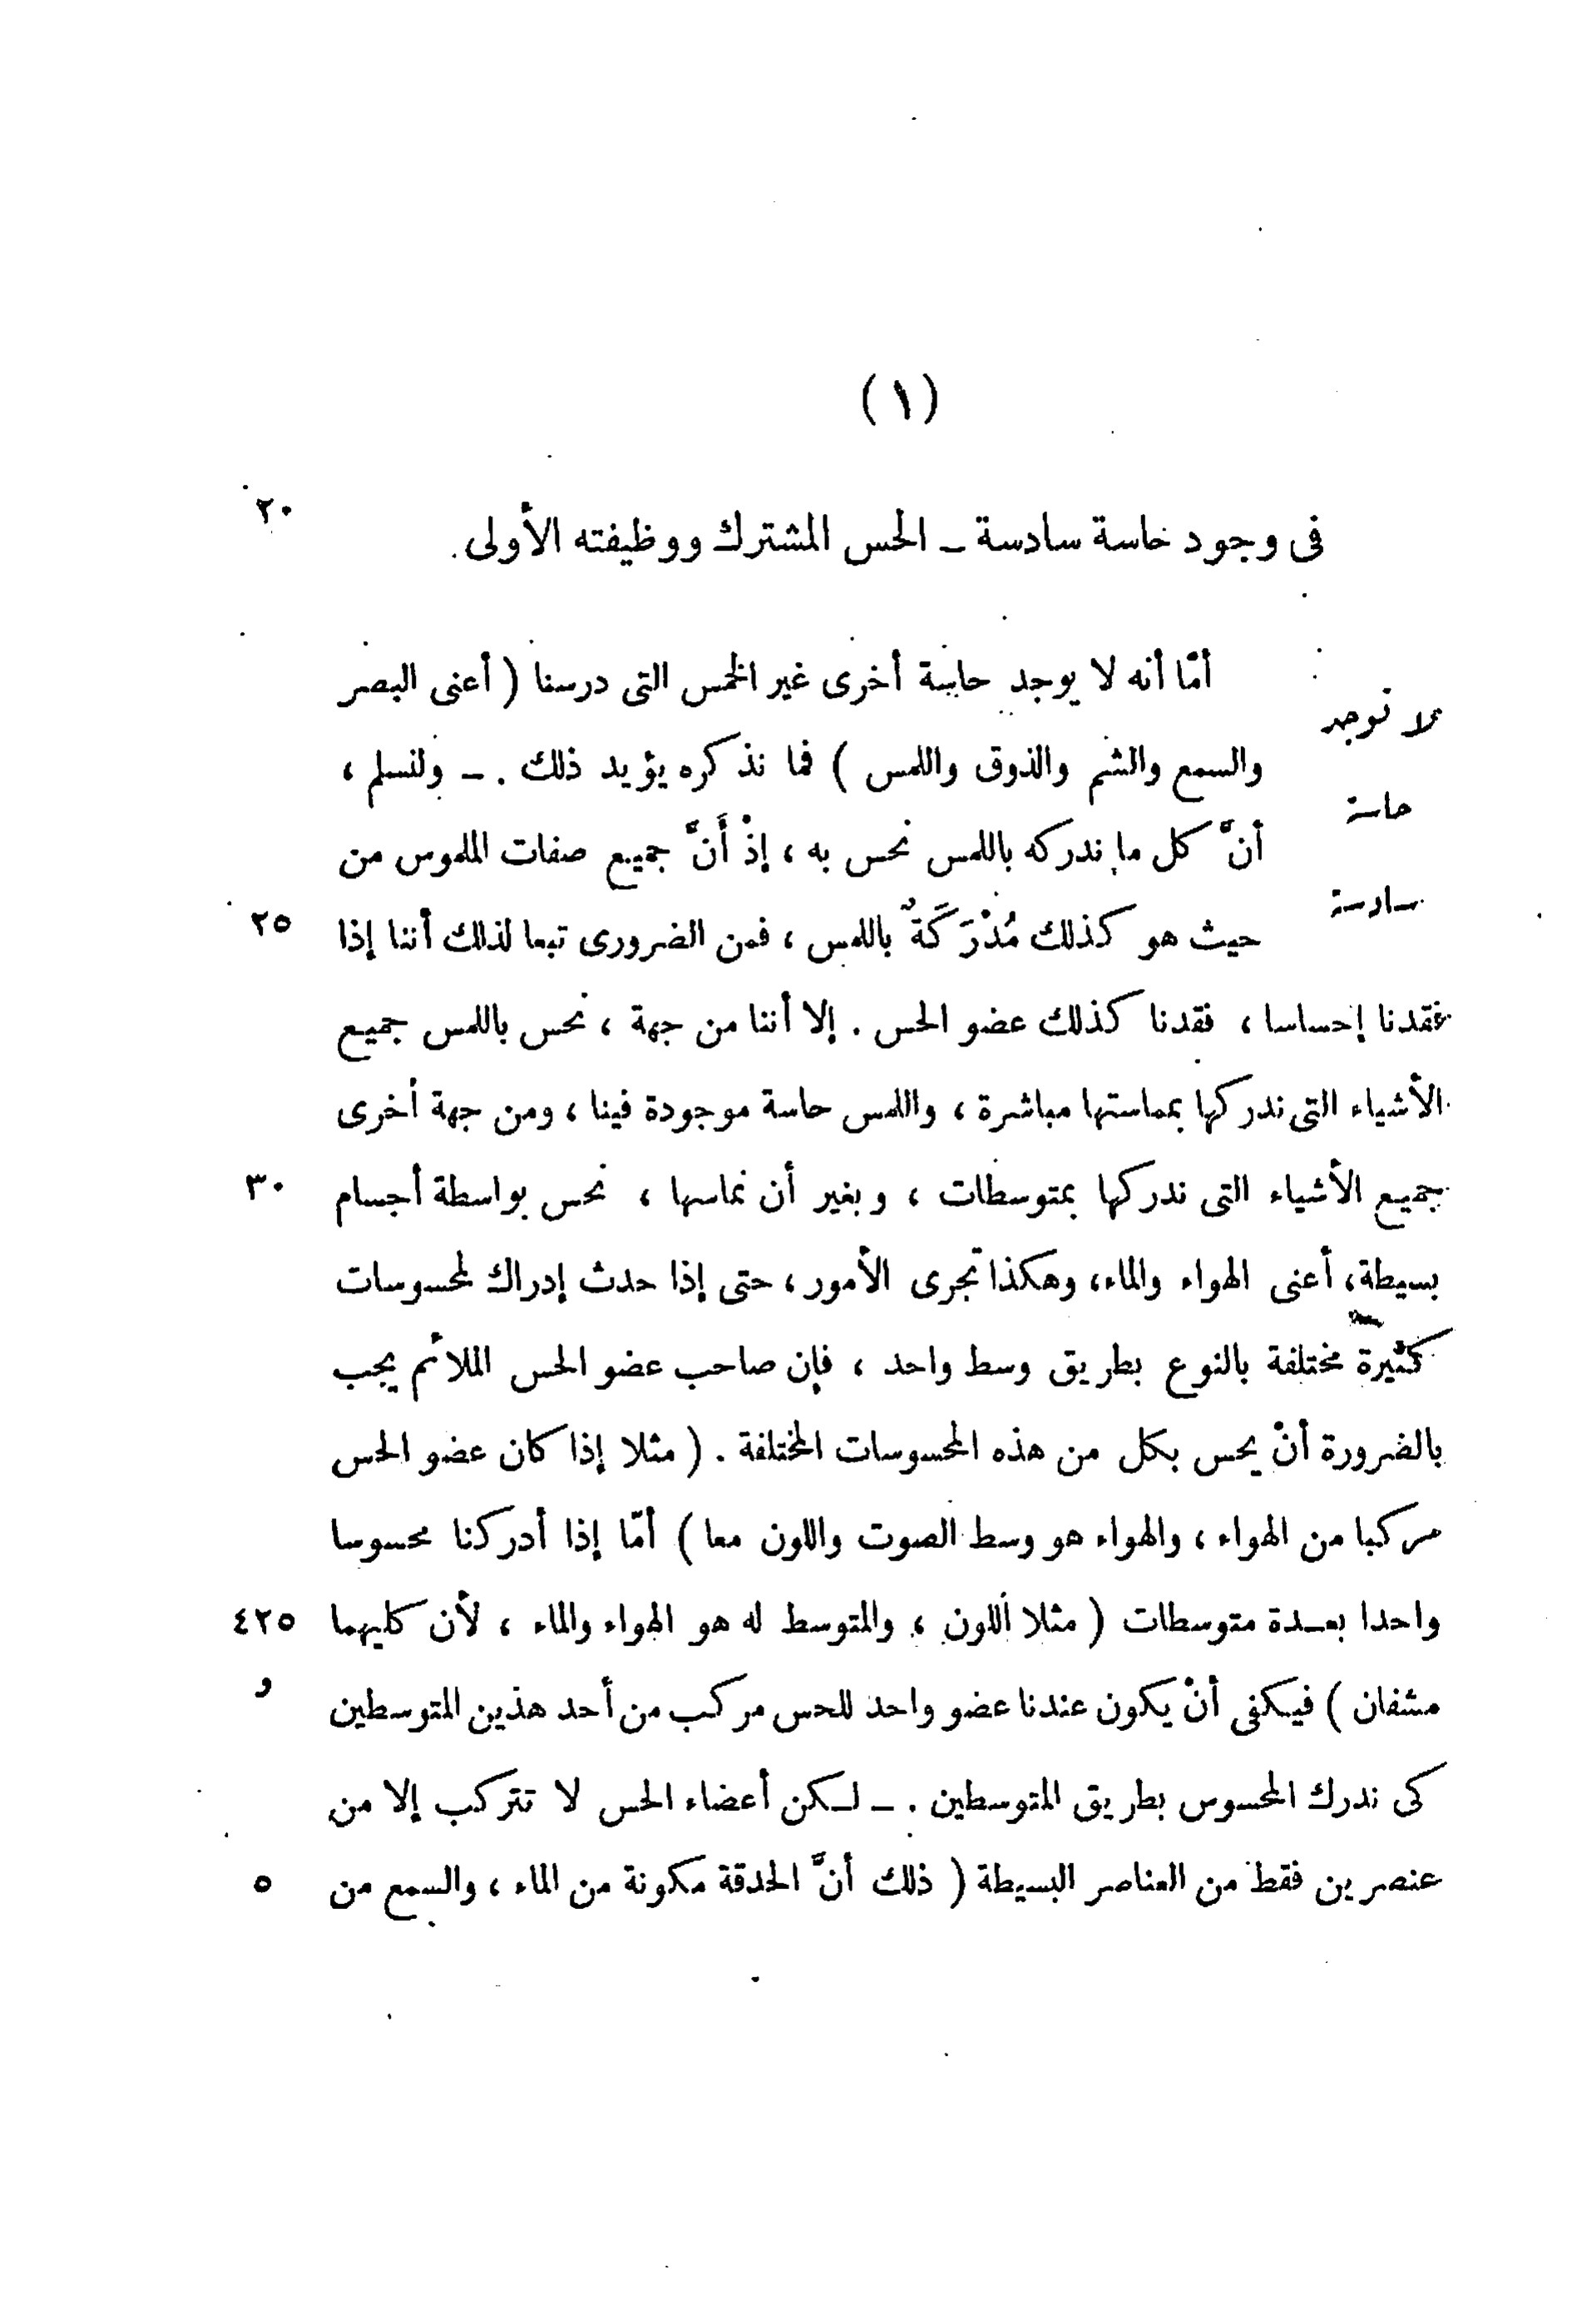 (١)
٢٠
فى وجود حاسة سادسة ــ الحس المشترك ووظيفته الأولى.
أمّا أنه لا يوجد حاسة أخرى غير الخمس التى درسنا ( أعنى البصر
لا توجد
والسمع والشم والذوق واللمس ) فما نذكره يؤيد ذلك . ــ ولنسلم ،
حاسة
أنَّ كل ما ندركه باللمس نحس به ، إذْ أَنَّ جميع صفات الملموس من
سادسة
حيث هو كذلك مُدْرَكَةٌ باللمس ، فمن الضرورى تبعا لذلك أننا إذا ٢٥
فقدنا إحساسا ، فقدنا كذلك عضو الحس . إلا أننا من جهة ، نحس باللمس جميع
الأشياء التى ندركها بمماستها مباشرة ، واللمس حاسة موجودة فينا ، ومن جهة أخرى
جميع الأشياء التى ندركها بمتوسطات ، وبغير أن نماسها ، نحس بواسطة أجسام ٣٠
بسيطة، أعنى الهواء والماء، وهكذا تجرى الأمور ، حتى إذا حدث إدراك لمحسوسات
كثيرة مختلفة بالنوع بطريق وسط واحد ، فإن صاحب عضو الحس الملائم يجب
بالضرورة أنْ يحس بكل من هذه المحسوسات المختلفة . ( مثلا إذا كان عضو الحس
مركبا من الهواء ، والهواء هو وسط الصوت واللون معا ) أمّا إذا أدركنا محسوسا
واحدا بعدة متوسطات ( مثلا اللون ، والمتوسط له هو الهواء والماء ، لأن كليهما ٤٢٥
مشفان ) فيكفى أنْ يكون عندنا عضو واحد للحس مركب من أحد هذين المتوسطين و
كى ندرك المحسوس بطريق المتوسطين . ــ لكن أعضاء الحس لا تتركب إلا من
عنصرين فقط من العناصر البسيطة ( ذلك أنَّ الحدقة مكونة من الماء ، والسمع من ٥